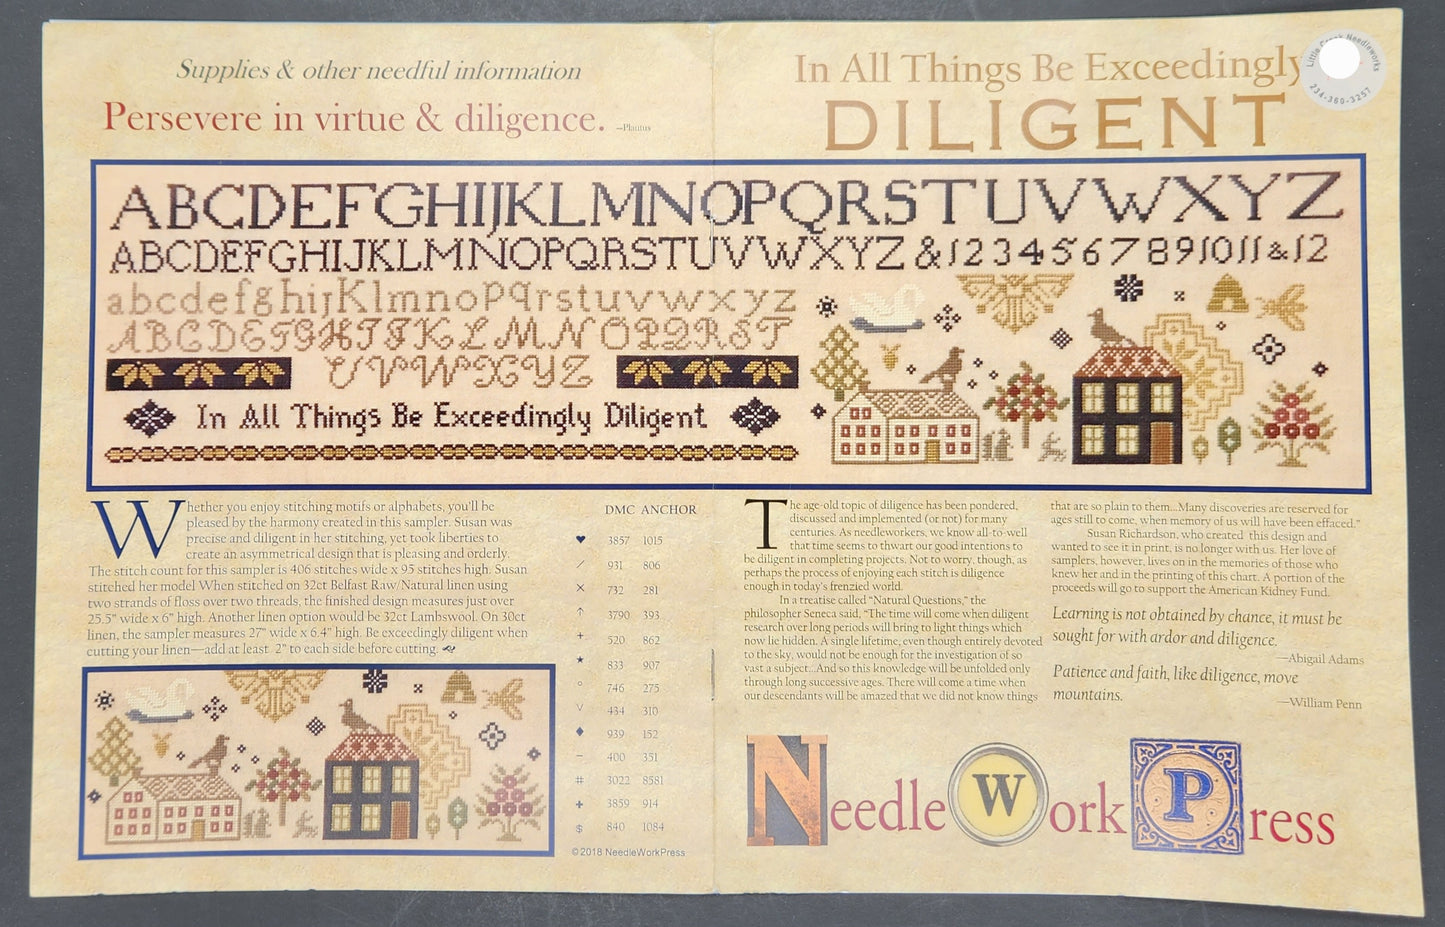 Supplies & other needful information
Persevere in virtue & diligence. —Plautus
In All Things Be Exceedingly
DILIGENT
Little Creek Needleworks
234-360-3257
ABCDEFGHIJKLMNOPQRSTUVWXYZ
ABCDEFGHIJKLMNOPQRSTUVWXYZ & 1 2 3 4 5 6 7 8 9 10 11 & 12
abcdefghijklmnopqrstuvwxyz
ABCDEFGHIJKLMNOPQRST
UVWXYZ
In All Things Be Exceedingly Diligent
Whether you enjoy stitching motifs or alphabets, you'll be
pleased by the harmony created in this sampler. Susan was
precise and diligent in her stitching, yet took liberties to
create an asymmetrical design that is pleasing and orderly.
The stitch count for this sampler is 406 stitches wide x 95 stitches high. Susan
stitched her model When stitched on 32ct Belfast Raw/Natural linen using
two strands of floss over two threads, the finished design measures just over
25.5" wide x 6" high. Another linen option would be 32ct Lambswool. On 30ct
linen, the sampler measures 27" wide x 6.4" high. Be exceedingly diligent when
cutting your linen—add at least 2" to each side before cutting.
DMC ANCHOR
♥ 3857 1015
/ 931 806
× 732 281
↑ 3790 393
+ 520 862
★ 833 907
° 746 275
v 434 310
♦ 939 152
− 400 351
# 3022 8581
+ 3859 914
$ 840 1084
©2018 NeedleWorkPress
The age-old topic of diligence has been pondered,
discussed and implemented (or not) for many
centuries. As needleworkers, we know all-to-well
that time seems to thwart our good intentions to
be diligent in completing projects. Not to worry, though, as
perhaps the process of enjoying each stitch is diligence
enough in today's frenzied world.
In a treatise called "Natural Questions," the
philosopher Seneca said, "The time will come when diligent
research over long periods will bring to light things which
now lie hidden. A single lifetime, even though entirely devoted
to the sky, would not be enough for the investigation of so
vast a subject...And so this knowledge will be unfolded only
through long successive ages. There will come a time when
our descendants will be amazed that we did not know things
that are so plain to them...Many discoveries are reserved for
ages still to come, when memory of us will have been effaced."
Susan Richardson, who created this design and
wanted to see it in print, is no longer with us. Her love of
samplers, however, lives on in the memories of those who
knew her and in the printing of this chart. A portion of the
proceeds will go to support the American Kidney Fund.
Learning is not obtained by chance, it must be
sought for with ardor and diligence.
—Abigail Adams
Patience and faith, like diligence, move
mountains.
—William Penn
Needle Work Press